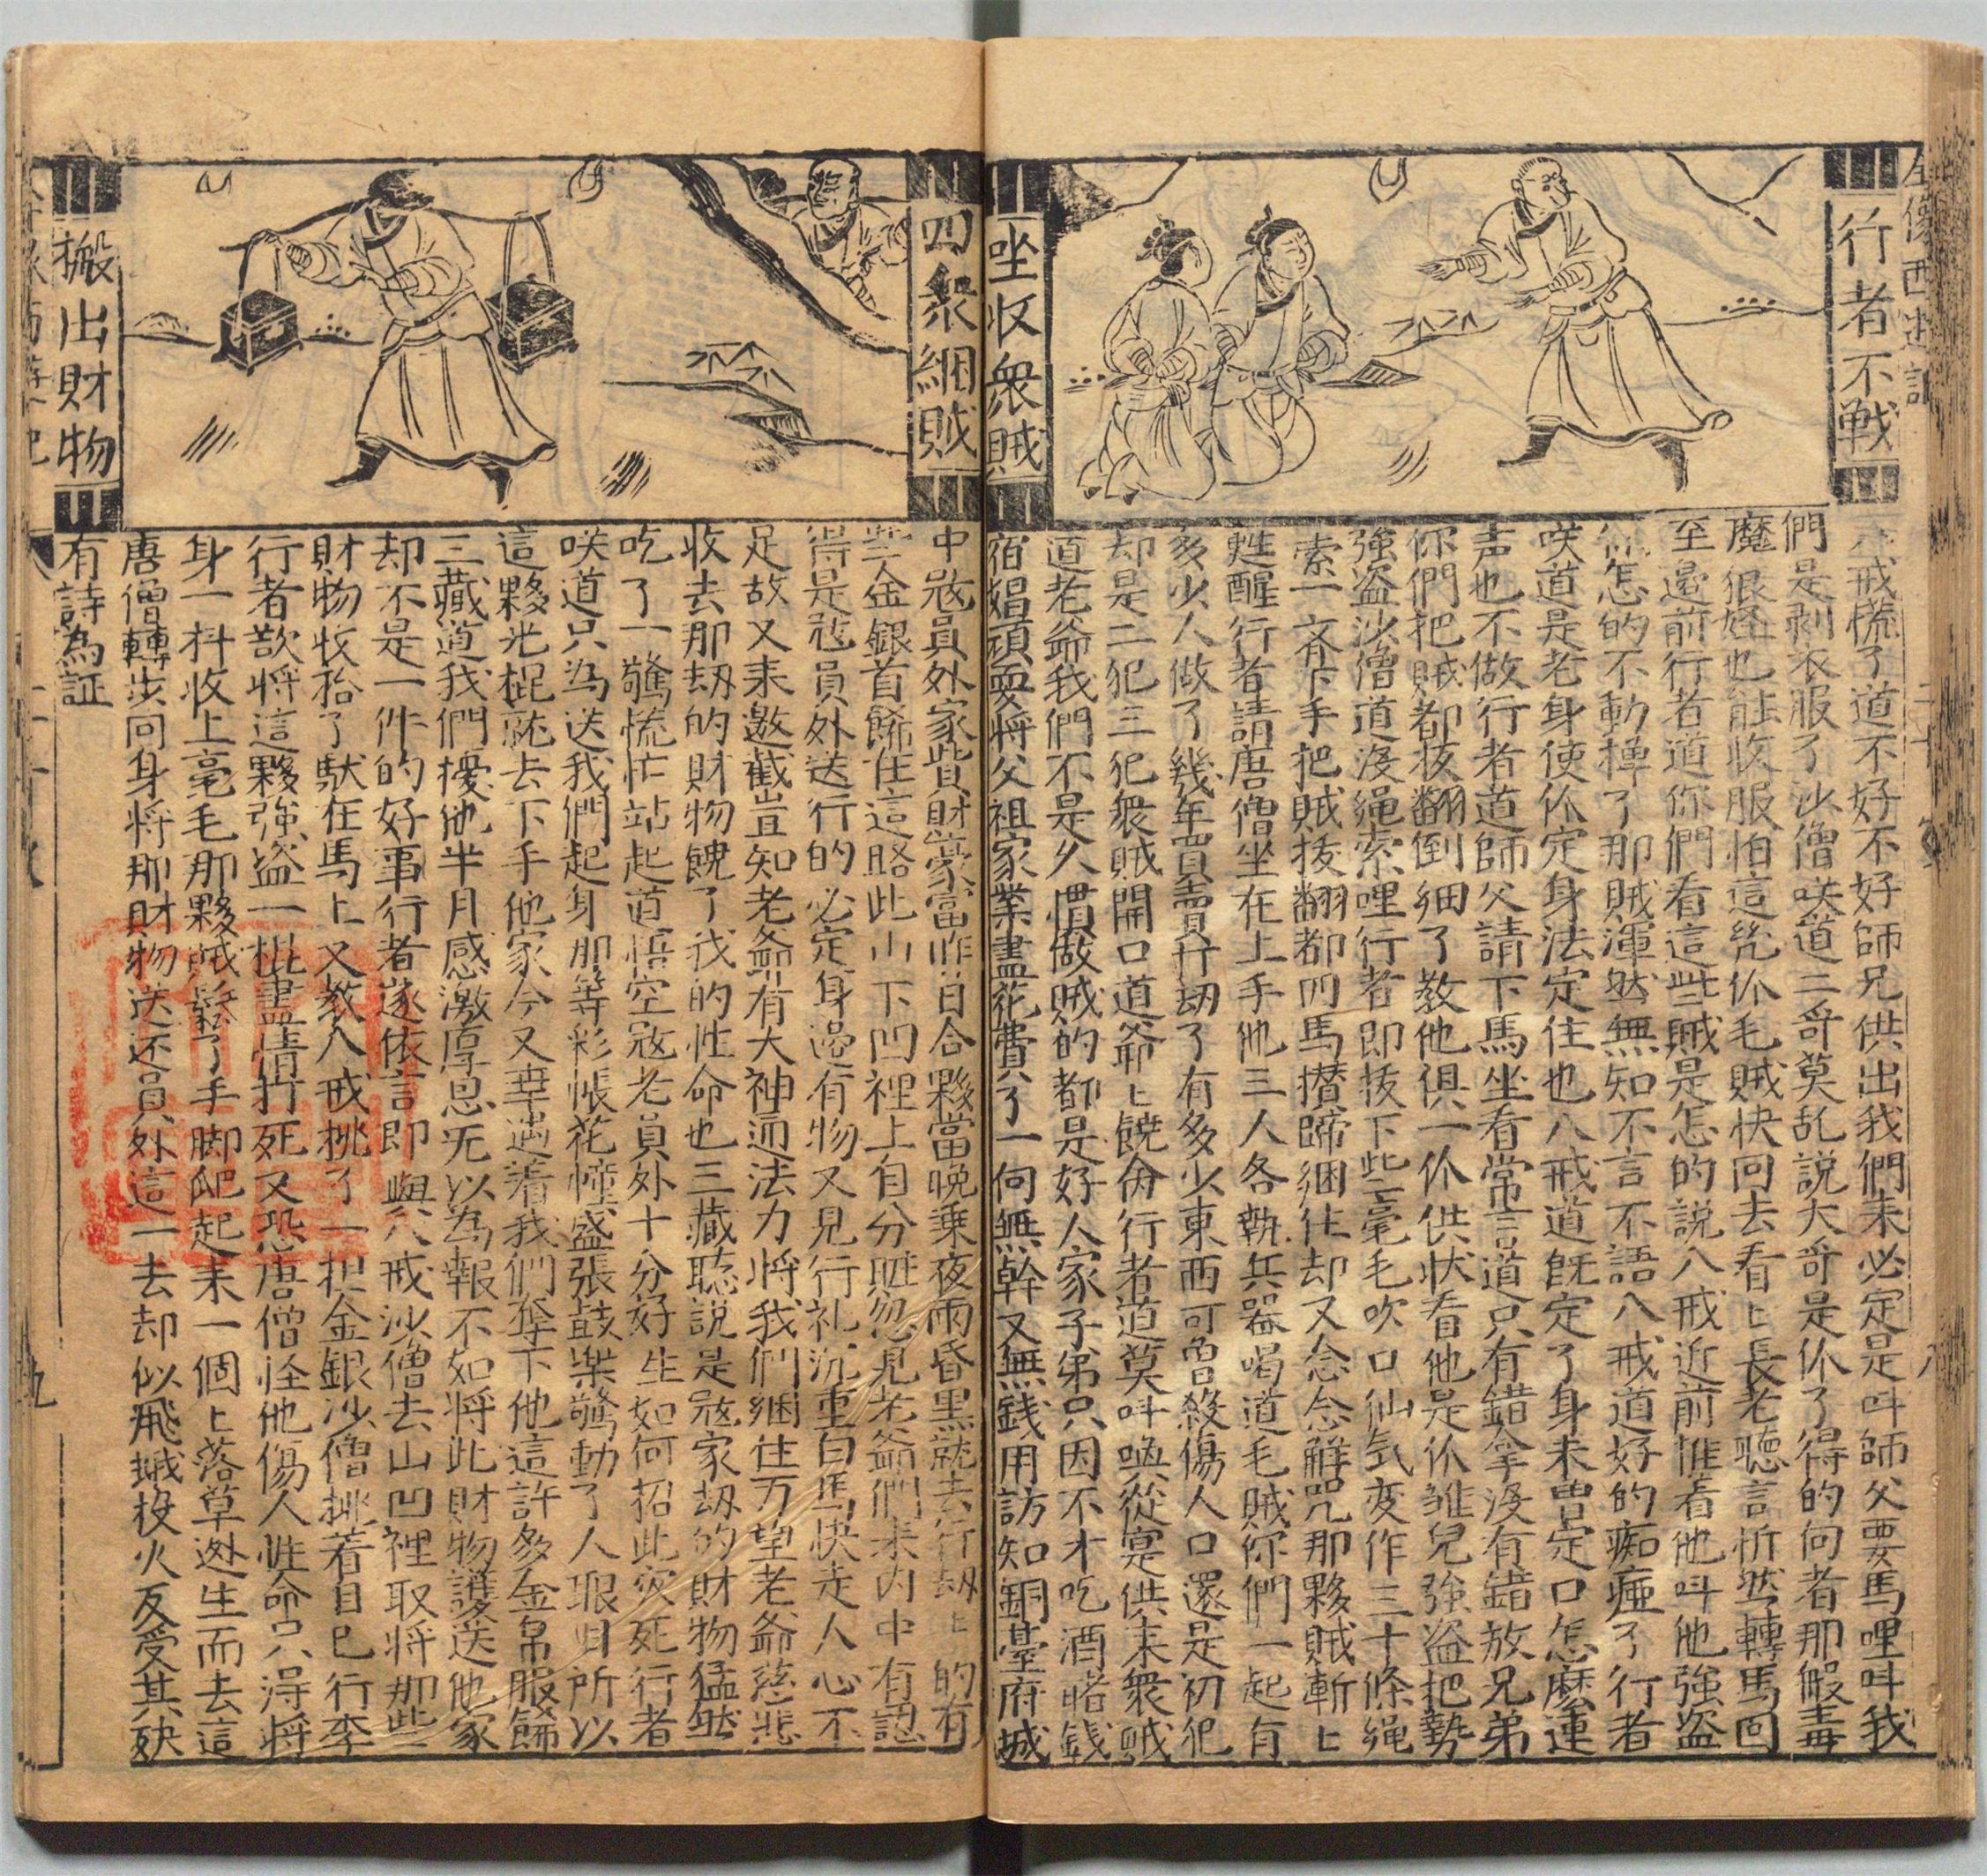 行者不戦
坐收衆賊
戒慌了道不好不好師兄供出我們来必定是呌師父要馬哩呌我
們是剥衣服了沙僧咲道二哥莫乱說大哥是个了得的向者那般毒
魔狠怪也能收服怕這幾个毛賊快回去看上長老聽言忻然轉馬回
至邉前行者道你們看這些賊是怎的說八戒近前推着他呌他強盗
怎的不動掸了那賊渾然無知不言不語八戒道好的痴瘂了行者
咲道是老身使个定身法定住也八戒道旣定了身未曽定口怎麽連
声也不做行者道師父請下馬坐看常言道只有錯拿沒有錯放兄弟
你們把賊都扳翻倒綑了教他俱一个供状看他是个雏兒強盗把勢
強盗沙僧道沒繩索哩行者即拔下些毫毛吹口仙気变作三十條繩
索一斉下手把賊扳翻都四馬攅蹄綑住却又念念觧咒那夥賊漸上
甦醒行者請唐僧坐在上手他三人各執兵器喝道毛賊你們一起有
多少人做了幾年買賣打刼了有多少東西可曽殺傷人口還是初犯
却是二犯三犯衆賊開口道爺上饒命行者道莫呌喚從寔供来衆賊
道老爺我們不是久慣做賊的都是好人家子弟只因不才吃酒賭銭
宿娼頑耍将父祖家業盡花費了一向無幹又無銭用訪知銅䑓府城
四衆綑賊
搬出財物
中寇員外家貲財豪富昨日合夥當晚乗夜雨昏黑就去行刼上的有
些金銀首餙在這路此山下凹裡上自分賍忽見老爺們来内中有認
得是寇員外送行的必定身邉有物又見行礼沉重白馬快走人心不
足故又来邀截豈知老爺有大神通法力将我們綑住万望老爺慈悲
收去那刼的財物饒了我的性命也三藏聽說是寇家刼的財物猛然
吃了一驚慌忙站起道悟空寇老員外十分好生如何招此灾死行者
咲道只為送我們起身那等彩帳花幢盛張鼓楽驚動了人眼目所以
這夥光棍就去下手他家今又幸遇着我們奪下他這許多金帛服餙
三藏道我們擾他半月感激厚恩无以為報不如将此財物護送他家
却不是一件的好事行者遂依言即與八戒沙僧去山凹裡取将那些
財物收拾了馱在馬上又教八戒挑了一担金銀沙僧挑着自巳行李
行者欲将這夥強盗一棍盡情打死又恐唐僧怪他傷人性命只淂将
身一抖收上毫毛那夥賊鬆了手脚爬起来一個上落草逃生而去這
唐僧轉步回身将那財物送还員外這一去却似飛蛾投火反受其殃
有詩為証